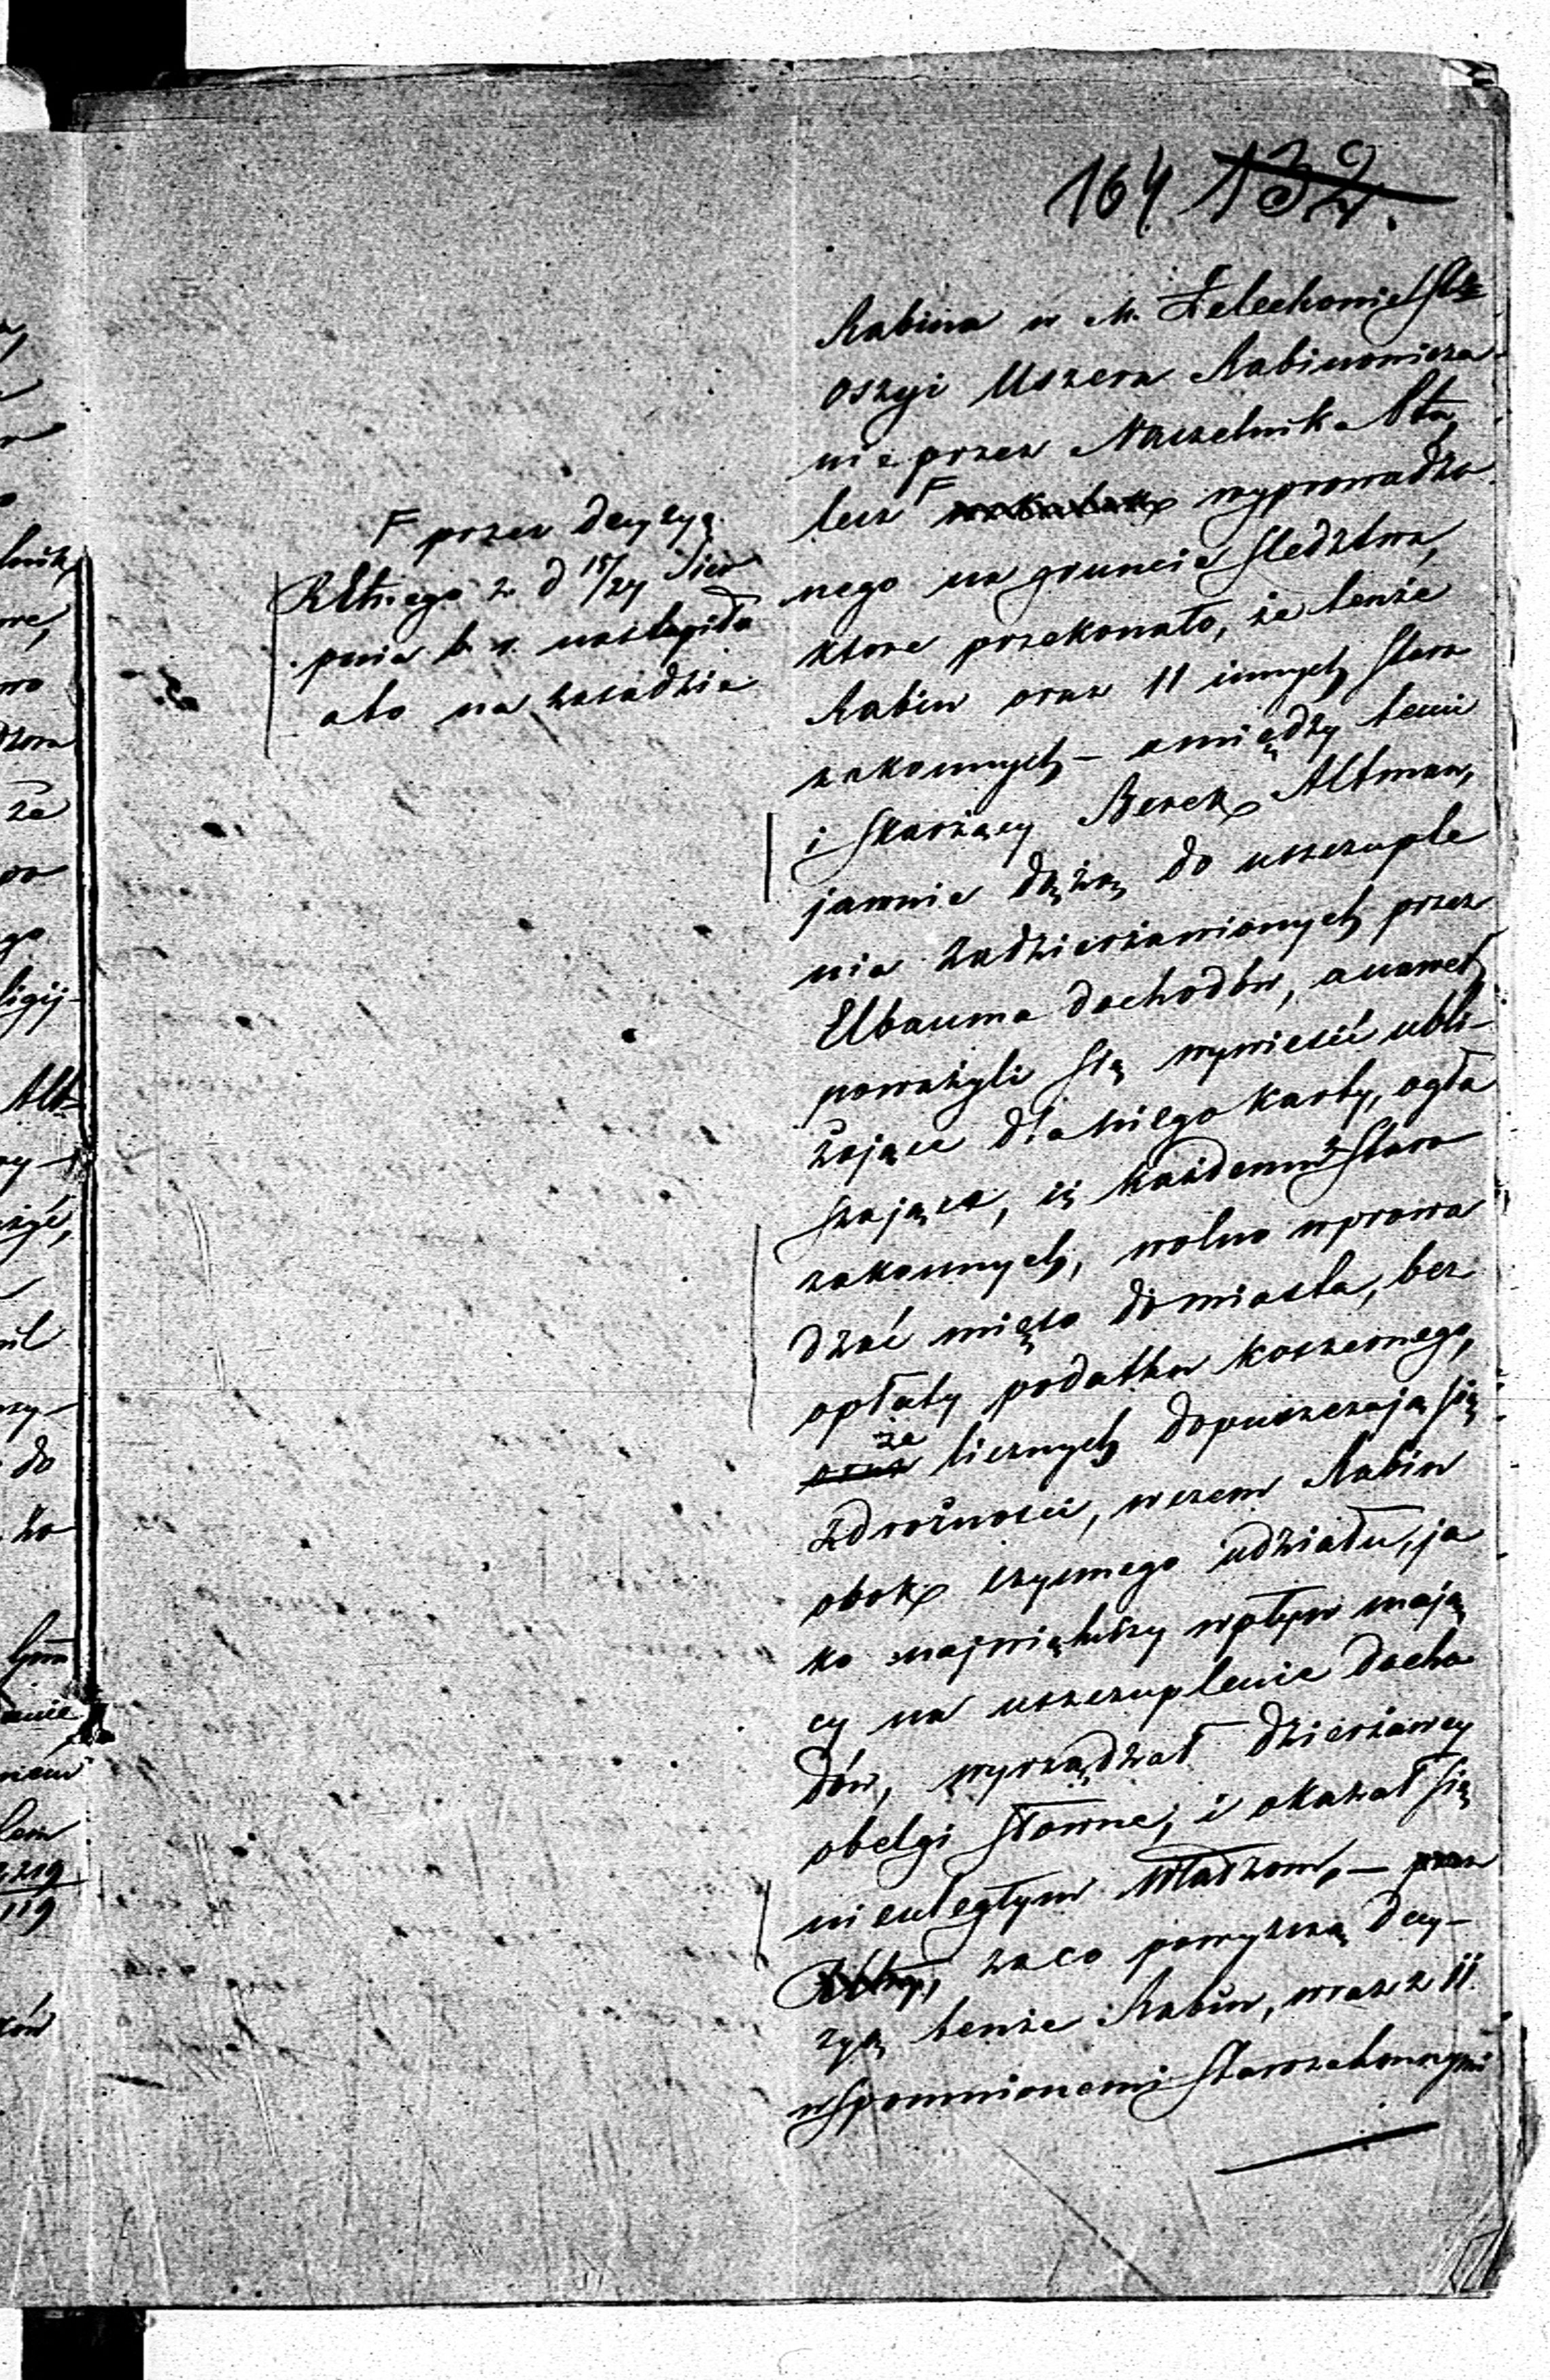 164 132.
Rabina w M. Żelechowie
oszyi Uszera Rabinowicza
nie przez Naczelnika Ptu,
lecz F wyprowadzo
nego na gruncie śledztwa,
ktore przekonało, że tenże
Rabin oraz 11 innych staro
zakonnych – a między temi
i skarżący Berek Altman,
jawnie dążą do uszczuple
nia zadzierżawionych przez
Elbauma dochodów, a nawet
poważyli się wywiesić ubli-
żające dla niego karty, ogła
szające, iż każdemu z staro
zakonnych, wolno wprowa
dzać mięso do miasta, bez
opłaty podatku koszernego,
oraz że licznych dopuszczają się
zdrożności, w czem Rabin
obok czynnego udziału, ja
ko największy wpływ mają
cy na uszczuplenie docho
dów, wyrządzał dzierżawcy
obelgi słowne, i okazał się
nieuległym Władzom, –
za co powyższą decy-
zyą tenże Rabin, wraz z 11
wspomnionemi Starozakonnymi
F przez decyzyą
RGtnego z d 15/27 Sier
pnia b. r. nastąpiła
a to na zasadzie